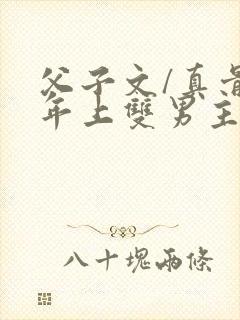 父子文/真
年上雙男主
八十塊兩條